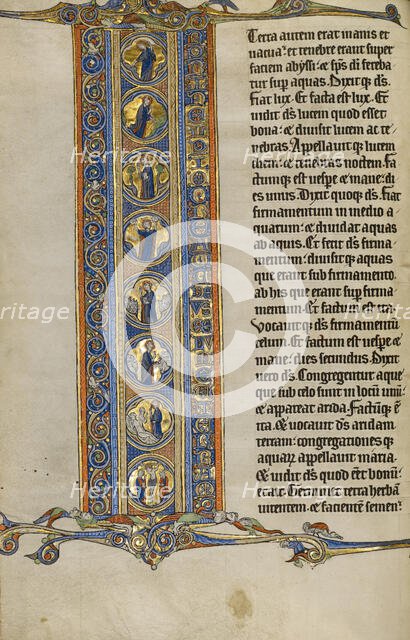 Terra autem erat inanis et
uacua· et tenebre erant super
faciem abyssi· et sp̄s dī fereba
tur sup aquas. Dixit q; ds̄.
Fiat lux. Et facta est lux. Et
uidit ds̄ lucem quod esset
bona· et diuisit lucem ac te
nebras. Appellauit q; lucem
diem· et tenebras noctem. Fa
ctum q; est uespe et mane· di
es unus. Dixit quoq; ds̄. Fiat
firmamentum in medio a
quarum· et diuidat aquas
ab aquis. Et fecit ds̄ firma
mentum· diuisitq; aquas
que erant sub firmamento·
ab his que erant sup firma
mentum. Et factum est ita.
Vocauit q; ds̄ firmamentū
celum. Et factum est uespe et
mane· dies secundus. Dixit
uero ds̄. Congregentur aque
que sub celo sunt in locū unū·
et appareat arida. Factūq; ē
ita. et uocauit ds̄ aridam
terram· congregationes q;
aquarꝝ appellauit maria.
Et uidit ds̄ quod eēt bonū·
et ait. Germinet terra herbā
uirentem· et facientē semen·
Heritage